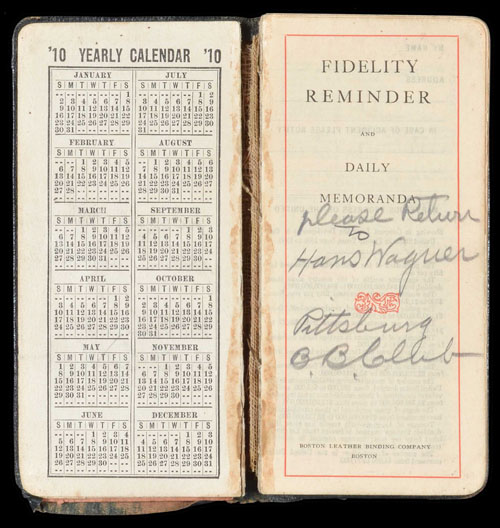 '10 YEARLY CALENDAR '10
JANUARY
S M T W T F S
1
2 3 4 5 6 7 8
9 10 11 12 13 14 15
16 17 18 19 20 21 22
23 24 25 26 27 28 29
30 31
FEBRUARY
S M T W T F S
1 2 3 4 5
6 7 8 9 10 11 12
13 14 15 16 17 18 19
20 21 22 23 24 25 26
27 28
MARCH
S M T W T F S
1 2 3 4 5
6 7 8 9 10 11 12
13 14 15 16 17 18 19
20 21 22 23 24 25 26
27 28 29 30 31
APRIL
S M T W T F S
1 2
3 4 5 6 7 8 9
10 11 12 13 14 15 16
17 18 19 20 21 22 23
24 25 26 27 28 29 30
MAY
S M T W T F S
1 2 3 4 5 6 7
8 9 10 11 12 13 14
15 16 17 18 19 20 21
22 23 24 25 26 27 28
29 30 31
JUNE
S M T W T F S
1 2 3 4
5 6 7 8 9 10 11
12 13 14 15 16 17 18
19 20 21 22 23 24 25
26 27 28 29 30
JULY
S M T W T F S
1 2
3 4 5 6 7 8 9
10 11 12 13 14 15 16
17 18 19 20 21 22 23
24 25 26 27 28 29 30
31
AUGUST
S M T W T F S
1 2 3 4 5 6
7 8 9 10 11 12 13
14 15 16 17 18 19 20
21 22 23 24 25 26 27
28 29 30 31
SEPTEMBER
S M T W T F S
1 2 3
4 5 6 7 8 9 10
11 12 13 14 15 16 17
18 19 20 21 22 23 24
25 26 27 28 29 30
OCTOBER
S M T W T F S
1
2 3 4 5 6 7 8
9 10 11 12 13 14 15
16 17 18 19 20 21 22
23 24 25 26 27 28 29
30 31
NOVEMBER
S M T W T F S
1 2 3 4 5
6 7 8 9 10 11 12
13 14 15 16 17 18 19
20 21 22 23 24 25 26
27 28 29 30
DECEMBER
S M T W T F S
1 2 3
4 5 6 7 8 9 10
11 12 13 14 15 16 17
18 19 20 21 22 23 24
25 26 27 28 29 30 31
FIDELITY
REMINDER
AND
DAILY
MEMORANDA
please Return
to
Hans Wagner
Pittsburg
B. B. Club
BOSTON LEATHER BINDING COMPANY
BOSTON